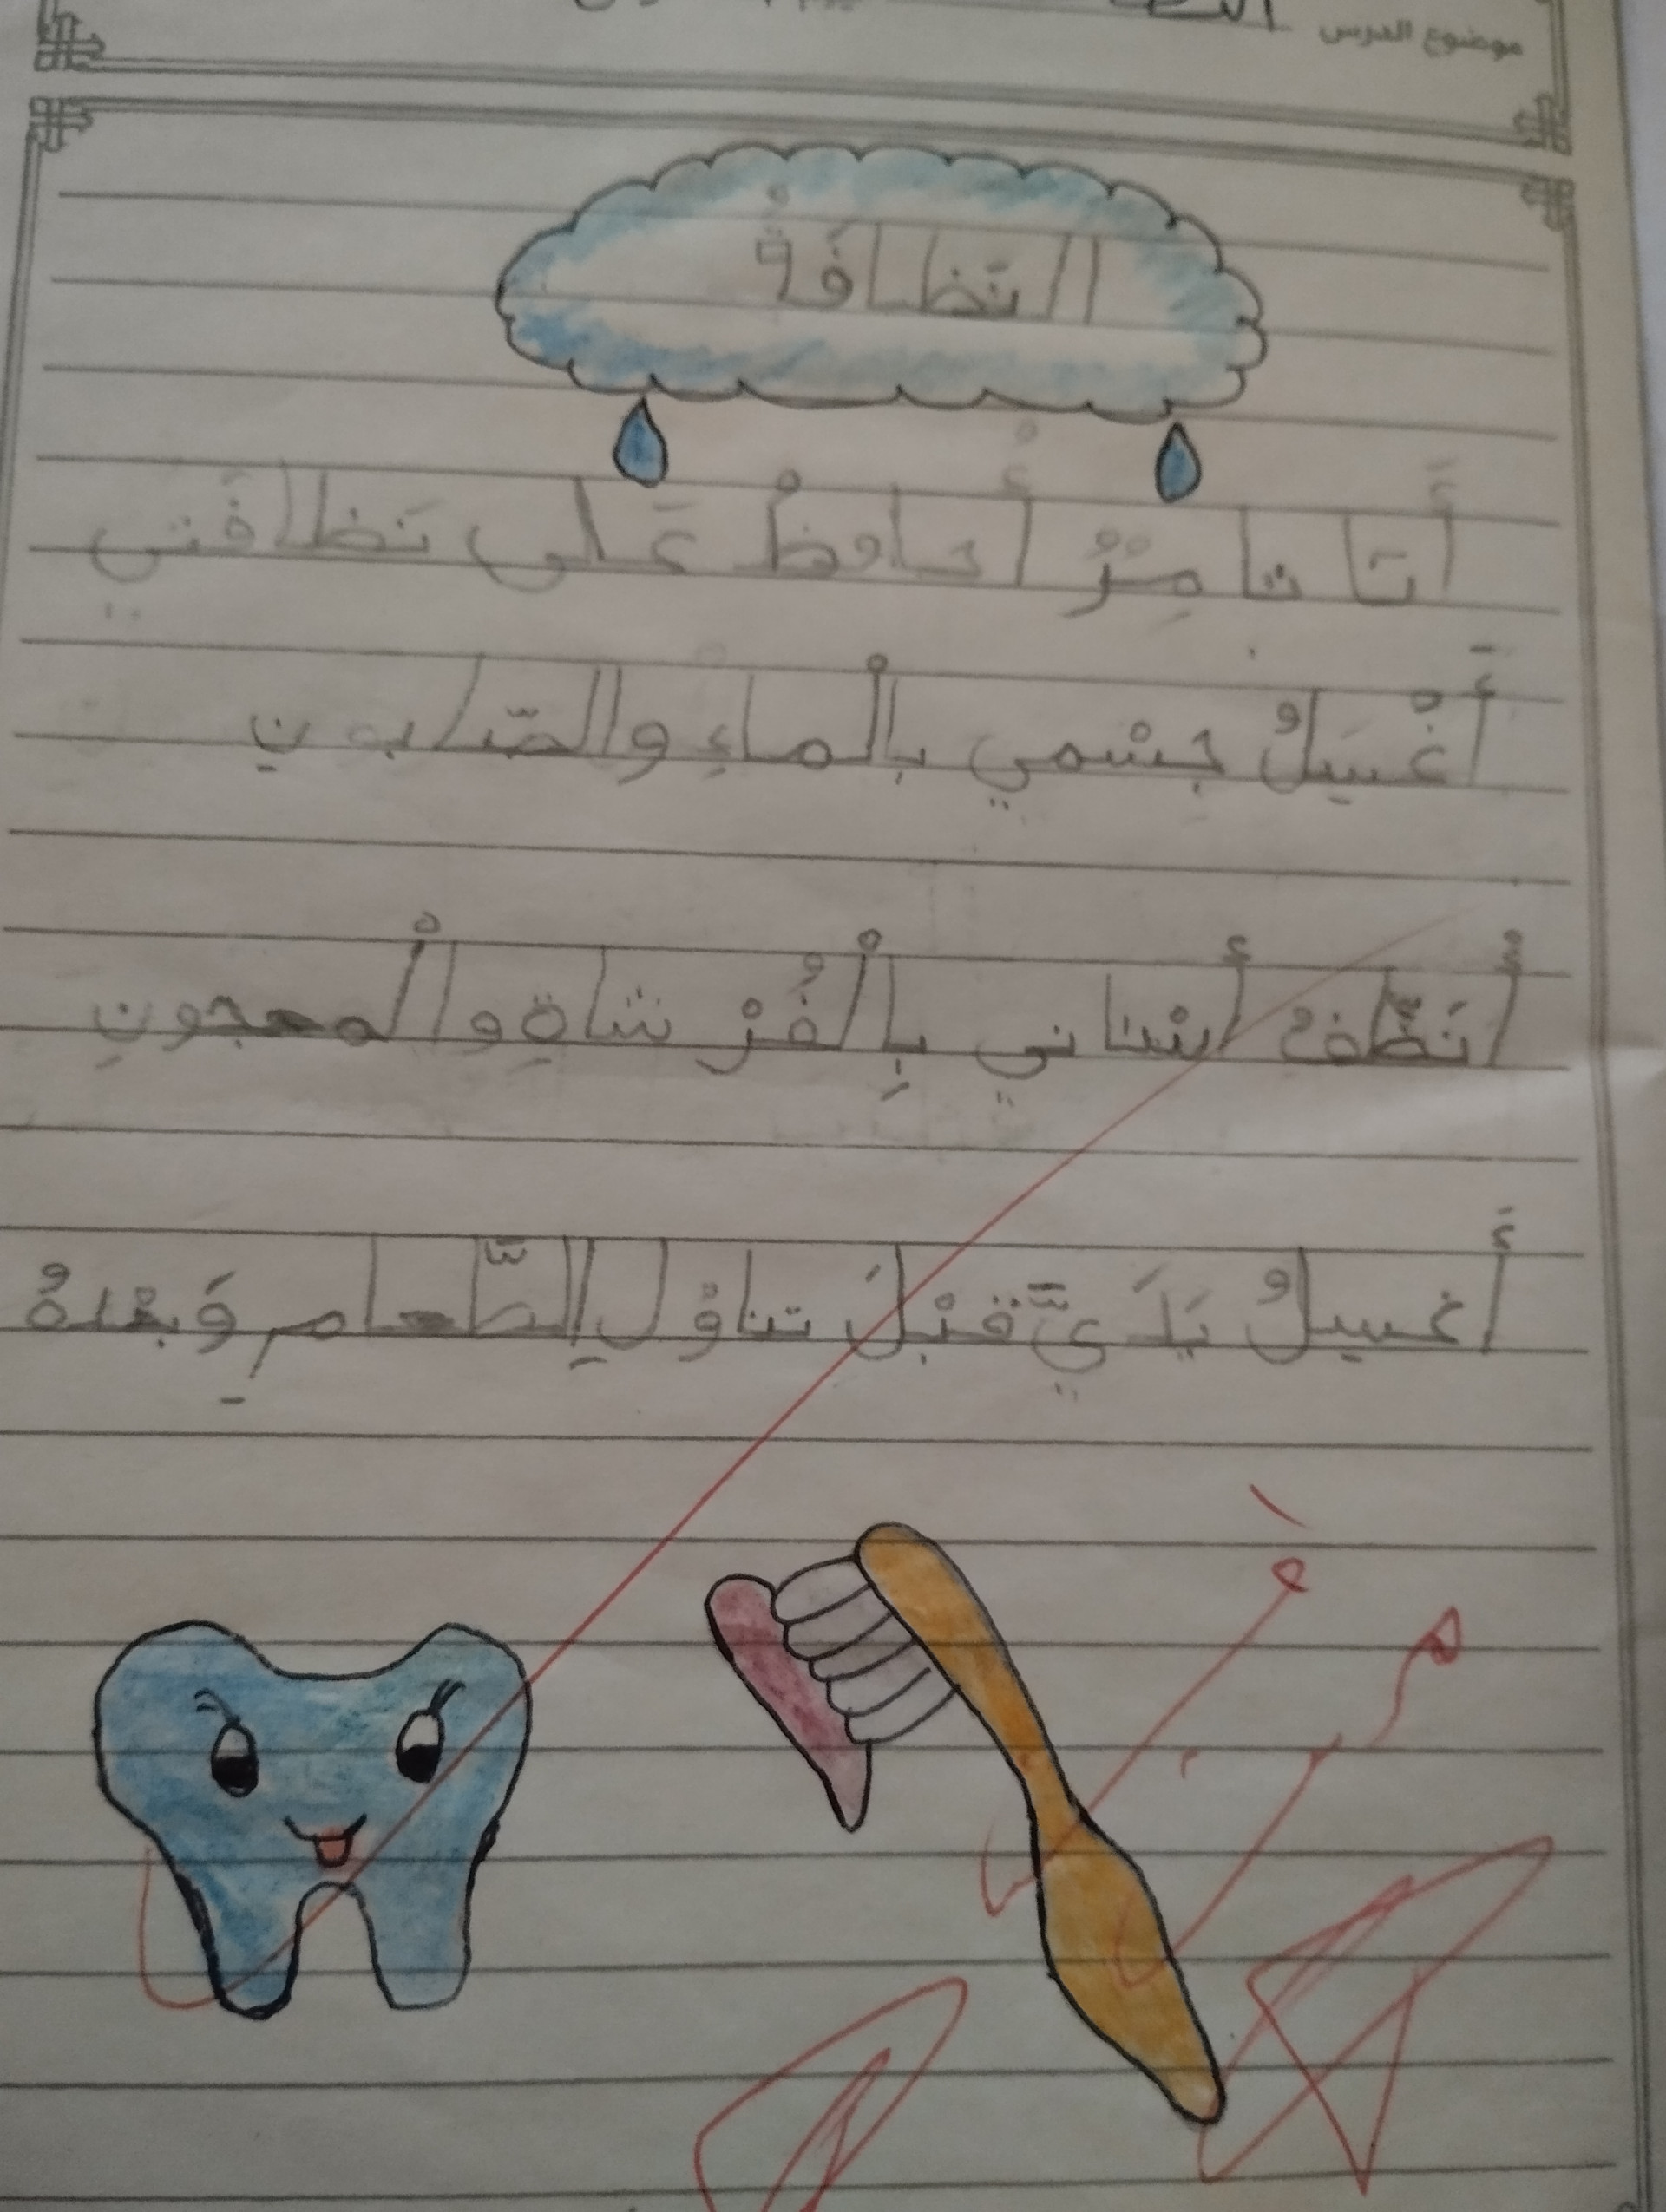 موضوع الدرس
النَّظافَةُ
أَنا تامِرٌ أُحافِظُ عَلى نَظافَتي
أَغْسِلُ جِسْمي بِالْماءِ والصّابونِ
أُنَظِّفُ أَسْناني بِالْفُرْشاةِ والْمعجونِ
أَغسِلُ يَدَيَّ قَبْلَ تناوُلِ الطَّعامِ وَبعْدهُ